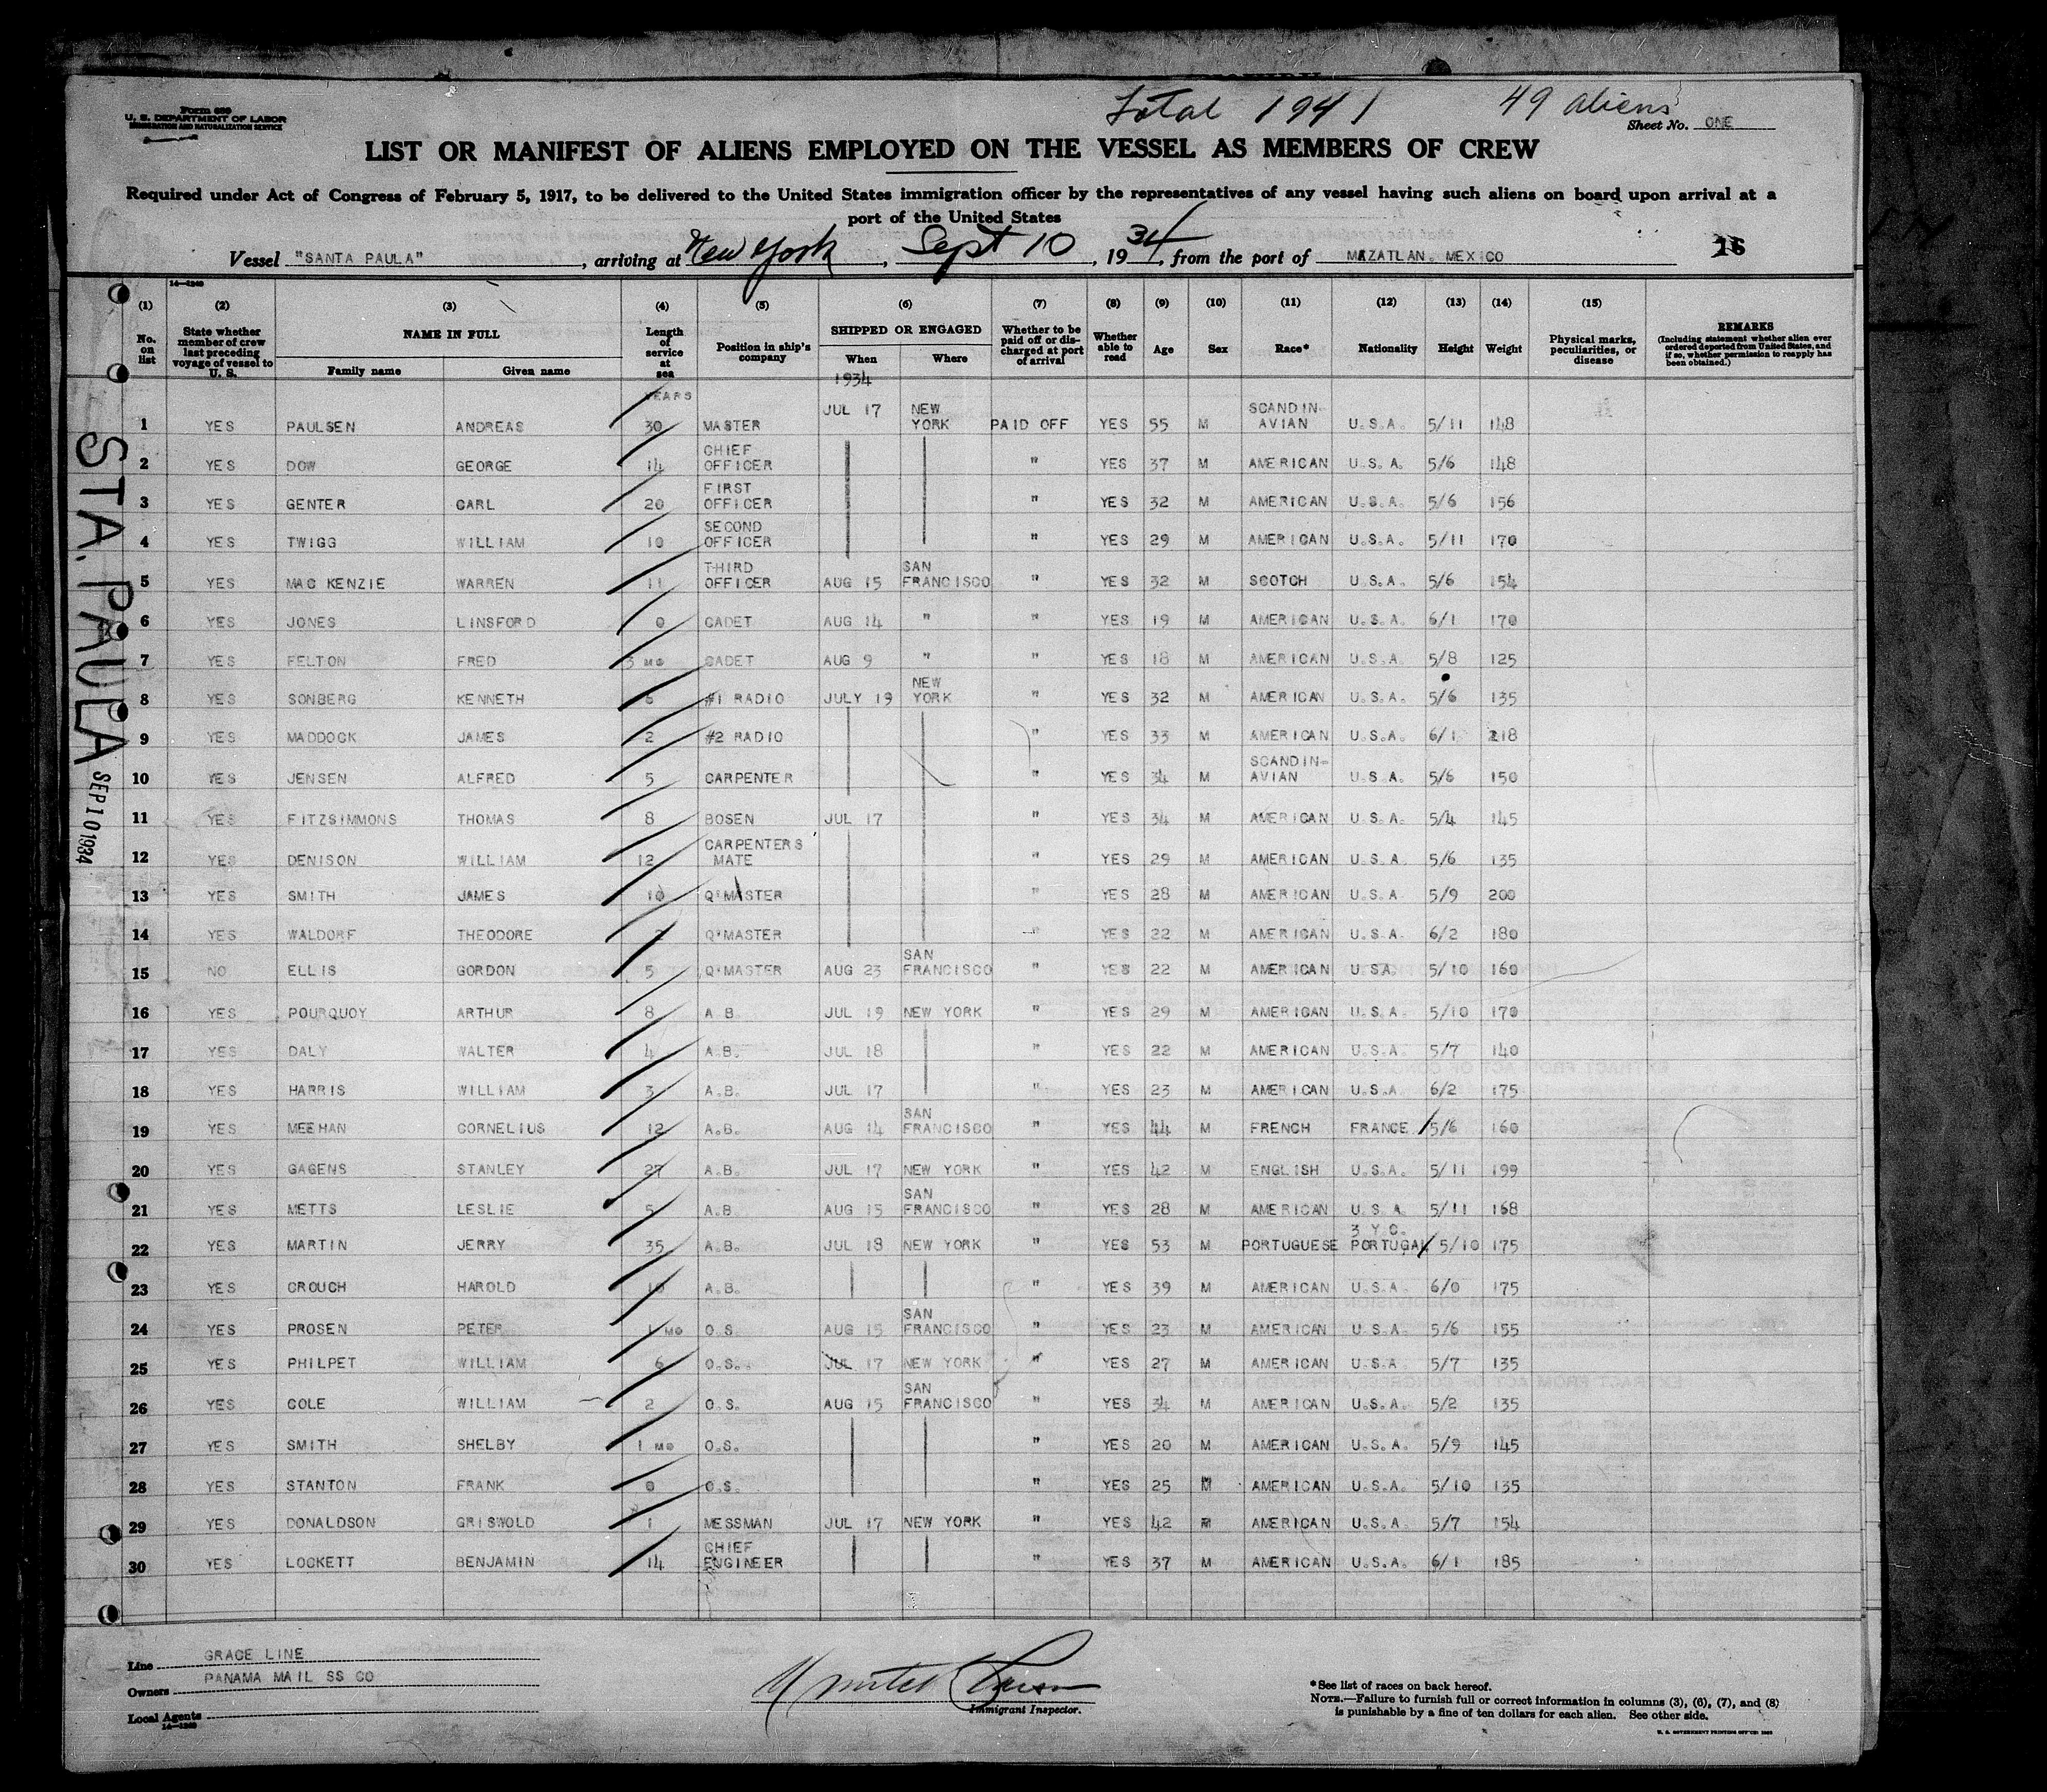 Form 689
U. S. DEPARTMENT OF LABOR
IMMIGRATION AND NATURALIZATION SERVICE
Total 194
49 Aliens
Sheet No. ONE
LIST OR MANIFEST OF ALIENS EMPLOYED ON THE VESSEL AS MEMBERS OF CREW
Required under Act of Congress of February 5, 1917, to be delivered to the United States immigration officer by the representatives of any vessel having such aliens on board upon arrival at a
port of the United States
Vessel "SANTA PAULA", arriving at New York, Sept 10, 1934, from the port of MAZATLAN. MEXICO
14—1240
(1) (2) (3) (4) (5) (6) (7) (8) (9) (10) (11) (12) (13) (14) (15)
No. on list | State whether member of crew last preceding voyage of vessel to U. S. | NAME IN FULL Family name Given name | Length of service at sea | Position in ship's company | SHIPPED OR ENGAGED When Where | Whether to be paid off or discharged at port of arrival | Whether able to read | Age | Sex | Race* | Nationality | Height | Weight | Physical marks, peculiarities, or disease | REMARKS (Including statement whether alien ever ordered deported from United States, and if so, whether permission to reapply has been obtained.)
YEARS 1934
1 YES PAULSEN ANDREAS 30 MASTER JUL 17 NEW YORK PAID OFF YES 55 M SCANDIN-AVIAN U.S.A. 5/11 148
2 YES DOW GEORGE 14 CHIEF OFFICER " YES 37 M AMERICAN U.S.A. 5/6 148
3 YES GENTER CARL 20 FIRST OFFICER " YES 32 M AMERICAN U.S.A. 5/6 156
4 YES TWIGG WILLIAM 10 SECOND OFFICER " YES 29 M AMERICAN U.S.A. 5/11 170
5 YES MAC KENZIE WARREN 11 THIRD OFFICER AUG 15 SAN FRANCISCO " YES 32 M SCOTCH U.S.A. 5/6 154
6 YES JONES LINSFORD 0 CADET AUG 14 " " YES 19 M AMERICAN U.S.A. 6/1 170
7 YES FELTON FRED 3 MO CADET AUG 9 " " YES 18 M AMERICAN U.S.A. 5/8 125
8 YES SONBERG KENNETH 6 #1 RADIO JULY 19 NEW YORK " YES 32 M AMERICAN U.S.A. 5/6 135
9 YES MADDOCK JAMES 2 #2 RADIO " YES 33 M AMERICAN U.S.A. 6/1 218
10 YES JENSEN ALFRED 5 CARPENTER " YES 34 M SCANDIN-AVIAN U.S.A. 5/6 150
11 YES FITZSIMMONS THOMAS 8 BOSEN JUL 17 " YES 34 M AMERICAN U.S.A. 5/4 145
12 YES DENISON WILLIAM 12 CARPENTERS MATE " YES 29 M AMERICAN U.S.A. 5/6 135
13 YES SMITH JAMES 10 Q'MASTER " YES 28 M AMERICAN U.S.A 5/9 200
14 YES WALDORF THEODORE 2 Q'MASTER " YES 22 M AMERICAN U.S.A. 6/2 180
15 NO ELLIS GORDON 5 Q'MASTER AUG 23 SAN FRANCISCO " YES 22 M AMERICAN USA 5/10 160
16 YES POURQUOY ARTHUR 8 A B. JUL 19 NEW YORK " YES 29 M AMERICAN U.S.A 5/10 170
17 YES DALY WALTER 4 A.B. JUL 18 " YES 22 M AMERICAN U.S.A. 5/7 140
18 YES HARRIS WILLIAM 3 A.B. JUL 17 " YES 23 M AMERICAN U.S.A 6/2 175
19 YES MEEHAN CORNELIUS 12 A.B. AUG 14 SAN FRANCISCO " YES 44 M FRENCH FRANCE 5/6 160
20 YES GAGENS STANLEY 27 A.B. JUL 17 NEW YORK " YES 42 M ENGLISH U.S.A. 5/11 199
21 YES METTS LESLIE 5 A.B. AUG 15 SAN FRANCISCO " YES 28 M AMERICAN U.S.A. 5/11 168
22 YES MARTIN JERRY 35 A.B. JUL 18 NEW YORK " YES 53 M PORTUGUESE 3 Y.C. PORTUGAL 5/10 175
23 YES CROUCH HAROLD 10 A.B. " YES 39 M AMERICAN U.S.A. 6/0 175
24 YES PROSEN PETER 1 MO O.S. AUG 15 SAN FRANCISCO " YES 23 M AMERICAN U.S.A. 5/6 155
25 YES PHILPET WILLIAM 6 O.S. JUL 17 NEW YORK " YES 27 M AMERICAN U.S.A 5/7 135
26 YES COLE WILLIAM 2 O.S. AUG 15 SAN FRANCISCO " YES 34 M AMERICAN U.S.A. 5/2 135
27 YES SMITH SHELBY 1 MO O.S. " YES 20 M AMERICAN U.S.A. 5/9 145
28 YES STANTON FRANK 0 O.S. " YES 25 M AMERICAN U.S.A. 5/10 135
29 YES DONALDSON GRISWOLD 1 MESSMAN JUL 17 NEW YORK " YES 42 M AMERICAN U.S.A. 5/7 154
30 YES LOCKETT BENJAMIN 14 CHIEF ENGINEER " YES 37 M AMERICAN U.S.A. 6/1 185
STA. PAULA SEP 10 1934
Line GRACE LINE
Owners PANAMA MAIL SS CO
Local Agents
14—1240
Immigrant Inspector.
*See list of races on back hereof.
NOTE.—Failure to furnish full or correct information in columns (3), (6), (7), and (8)
is punishable by a fine of ten dollars for each alien. See other side.